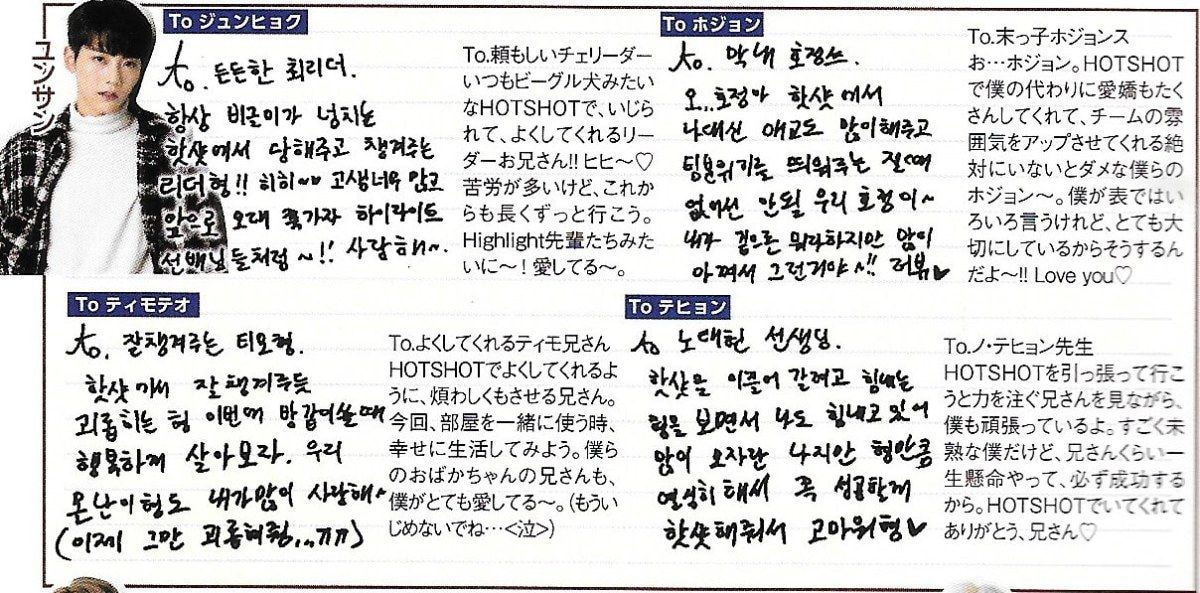 ユンサン
To ジュンヒョク
to. 든든한 최리더.
항상 비글미가 넘치는
핫샷에서 당해주고 챙겨주는
리더형!! 히히~~ 고생너무 많고
앞으로 오래 쭉가자 하이라이트
선배님들처럼~!! 사랑해~.
To.頼もしいチェリーダー
いつもビーグル犬みたい
なHOTSHOTで、いじら
れて、よくしてくれるリー
ダーお兄さん!! ヒヒ〜♡
苦労が多いけど、これか
らも長くずっと行こう。
Highlight先輩たちみた
いに〜！愛してる〜。
To ホジョン
to. 막내 호정쓰.
오...호정아 핫샷에서
나대신 애교도 많이해주고
팀분위기를 띄워주는 절때
없어선 안될 우리 호정이~
내가 겉으론 뭐라하지만 많이
아껴서 그런거야~!! 러뷰♥
To.末っ子ホジョンス
お…ホジョン。HOTSHOT
で僕の代わりに愛嬌もたく
さんしてくれて、チームの雰
囲気をアップさせてくれる絶
対にいないとダメな僕らの
ホジョン〜。僕が表ではい
ろいろ言うけれど、とても大
切にしているからそうするん
だよ〜!! Love you♡
To ティモテオ
to. 잘챙겨주는 티모형.
핫샷에서 잘챙겨주듯
괴롭히는 형 이번에 방같이쓸때
행복하게 살아보자. 우리
온난이형도 내가많이 사랑해~
(이제 그만 괴롭혀줭...ㅠㅠ)
To.よくしてくれるティモ兄さん
HOTSHOTでよくしてくれるよ
うに、煩わしくもさせる兄さん。
今回、部屋を一緒に使う時、
幸せに生活してみよう。僕ら
のおばかちゃんの兄さんも、
僕がとても愛してる〜。(もうい
じめないでね…<泣>)
To テヒョン
to 노태현 선생님.
핫샷을 이끌어 갈려고 힘내는
형을 보면서 나도 힘내고 있어
많이 모자란 나지만 형만큼
열심히 해서 꼭 성공할게
핫샷해줘서 고마워형♥
To.ノ・テヒョン先生
HOTSHOTを引っ張って行こ
うと力を注ぐ兄さんを見ながら、
僕も頑張っているよ。すごく未
熟な僕だけど、兄さんくらい一
生懸命やって、必ず成功する
から。HOTSHOTでいてくれて
ありがとう、兄さん♡